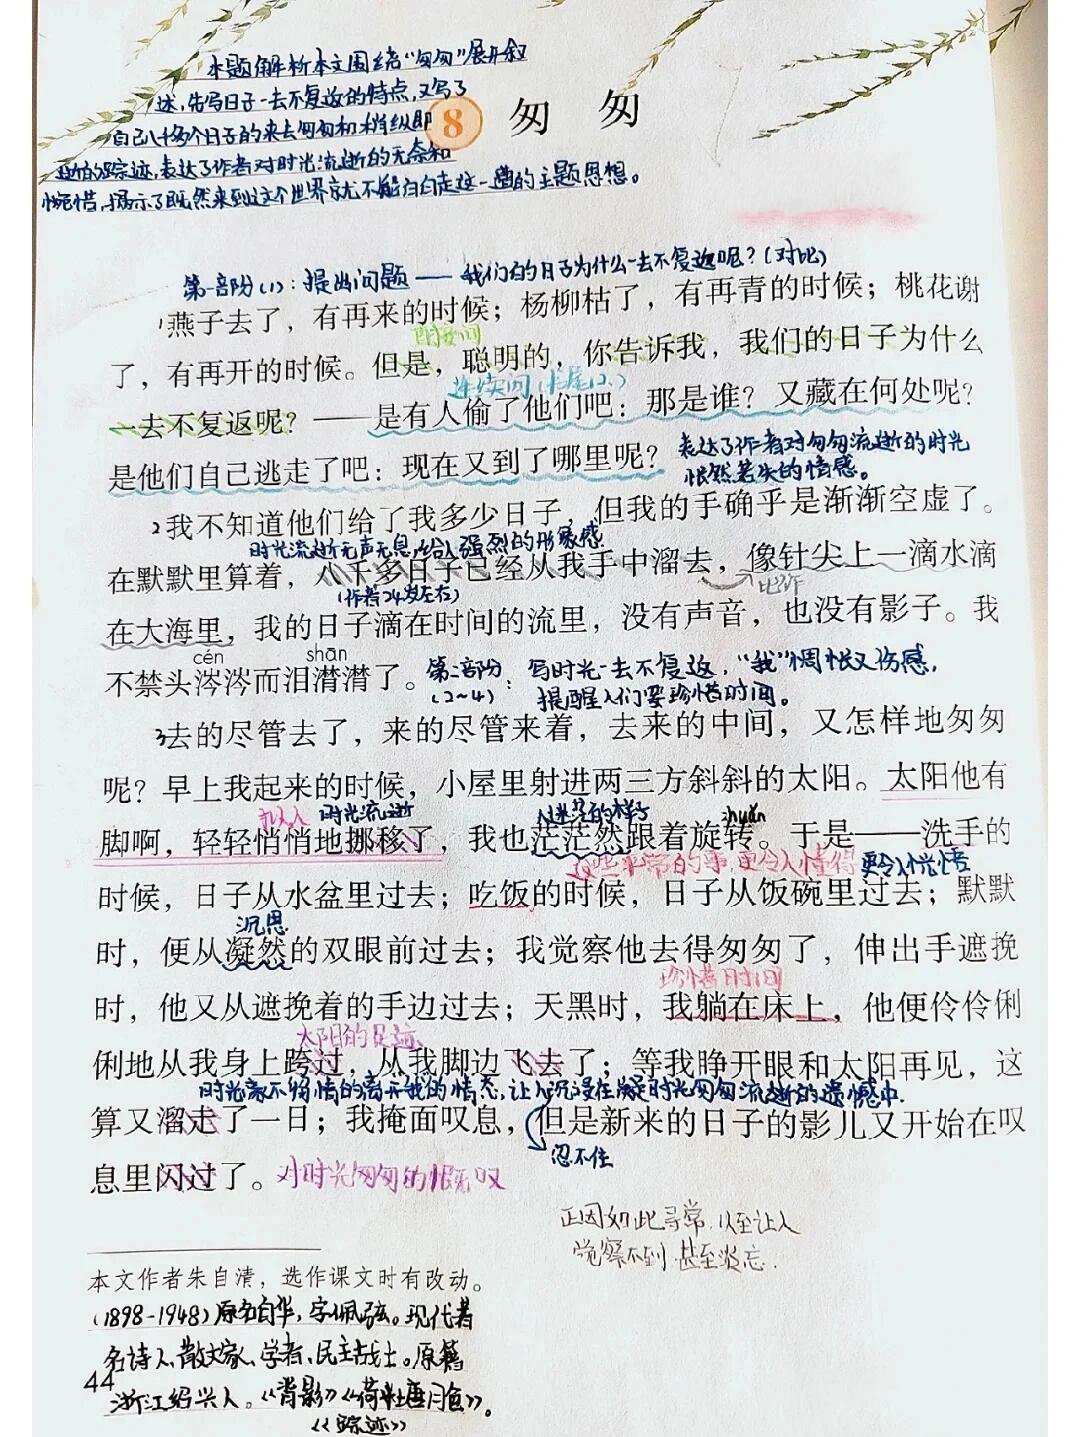 本题解析本文围绕“匆匆”展开叙
述,先写日子一去不复返的特点,又写了
自己八千多个日子的来去匆匆和稍纵即
逝的踪迹,表达了作者对时光流逝的无奈和
惋惜,揭示了既然来到这个世界就不能白白走这一遭的主题思想。
8 匆匆
第一部分(1):提出问题——我们的日子为什么一去不复返呢?(对比)
1燕子去了，有再来的时候；杨柳枯了，有再青的时候；桃花谢
设问
了，有再开的时候。但是，聪明的，你告诉我，我们的日子为什么
连续问
一去不复返呢？——是有人偷了他们吧：那是谁？又藏在何处呢？
是他们自己逃走了吧：现在又到了哪里呢？
表达了作者对匆匆流逝的时光
怅然若失的情感。
2我不知道他们给了我多少日子，但我的手确乎是渐渐空虚了。
时光流逝无声无息,给人强烈的形象感
在默默里算着，八千多日子已经从我手中溜去，像针尖上一滴水滴
(作者24岁左右)
比作
在大海里，我的日子滴在时间的流里，没有声音，也没有影子。我
cén shān
不禁头涔涔而泪潸潸了。
第二部分: 写时光一去不复返,“我”惆怅又伤感,
(2~4) 提醒人们要珍惜时间。
3去的尽管去了，来的尽管来着，去来的中间，又怎样地匆匆
呢？早上我起来的时候，小屋里射进两三方斜斜的太阳。太阳他有
拟人 时光流逝 迷茫的样子 zhuǎn
脚啊，轻轻悄悄地挪移了，我也茫茫然跟着旋转。于是——洗手的
这些平常的事,更令人懂得 更令人惋惜
时候，日子从水盆里过去；吃饭的时候，日子从饭碗里过去；默默
沉思
时，便从凝然的双眼前过去；我觉察他去得匆匆了，伸出手遮挽
珍惜时间
时，他又从遮挽着的手边过去；天黑时，我躺在床上，他便伶伶俐
太阳的足迹
俐地从我身上跨过，从我脚边飞去了；等我睁开眼和太阳再见，这
算又溜走了一日；我掩面叹息，但是新来的日子的影儿又开始在叹
忍不住
息里闪过了。
对时光匆匆的慨叹
正因如此寻常,以至让人
觉察不到,甚至淡忘.
本文作者朱自清，选作课文时有改动。
(1898-1948)原名自华,字佩弦。现代著
名诗人、散文家、学者、民主战士。原籍
44
浙江绍兴人。《背影》《荷塘月色》。
《踪迹》